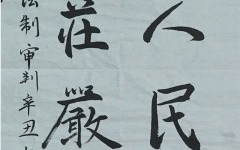 人民
莊嚴
法制审判辛丑